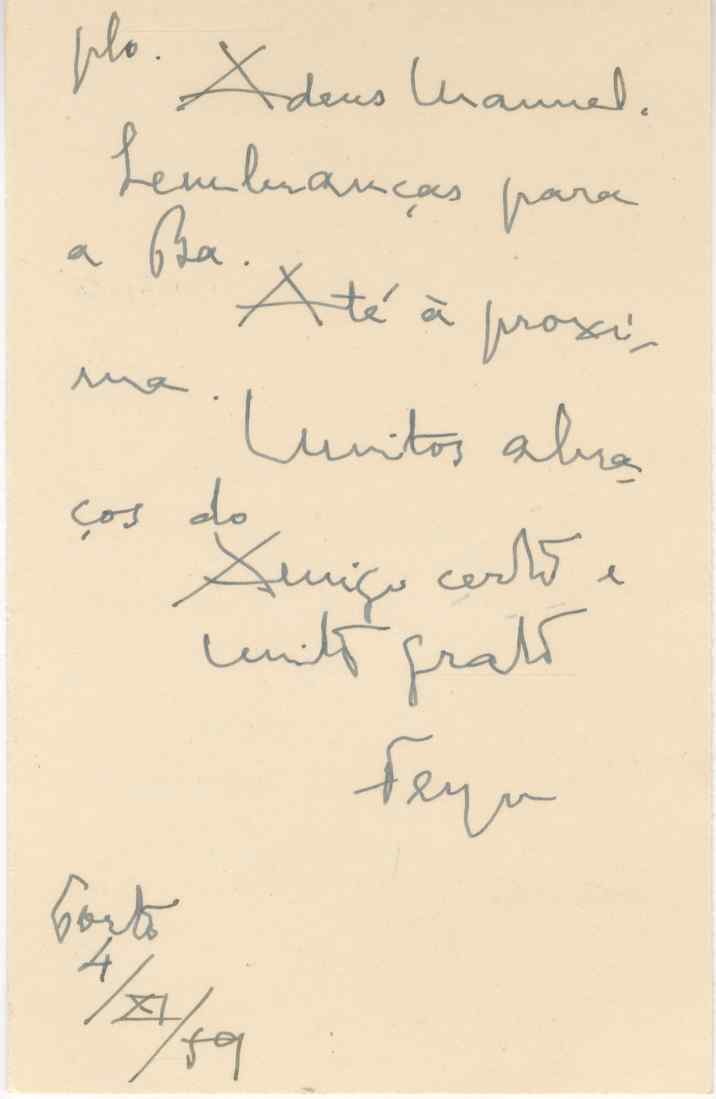 plo. Adeus Manuel.
Lembranças para
a Ba.
Até à proxi-
ma.
Muitos abra-
ços do
Amigo certo e
muito grato
Porto
4/XI/59